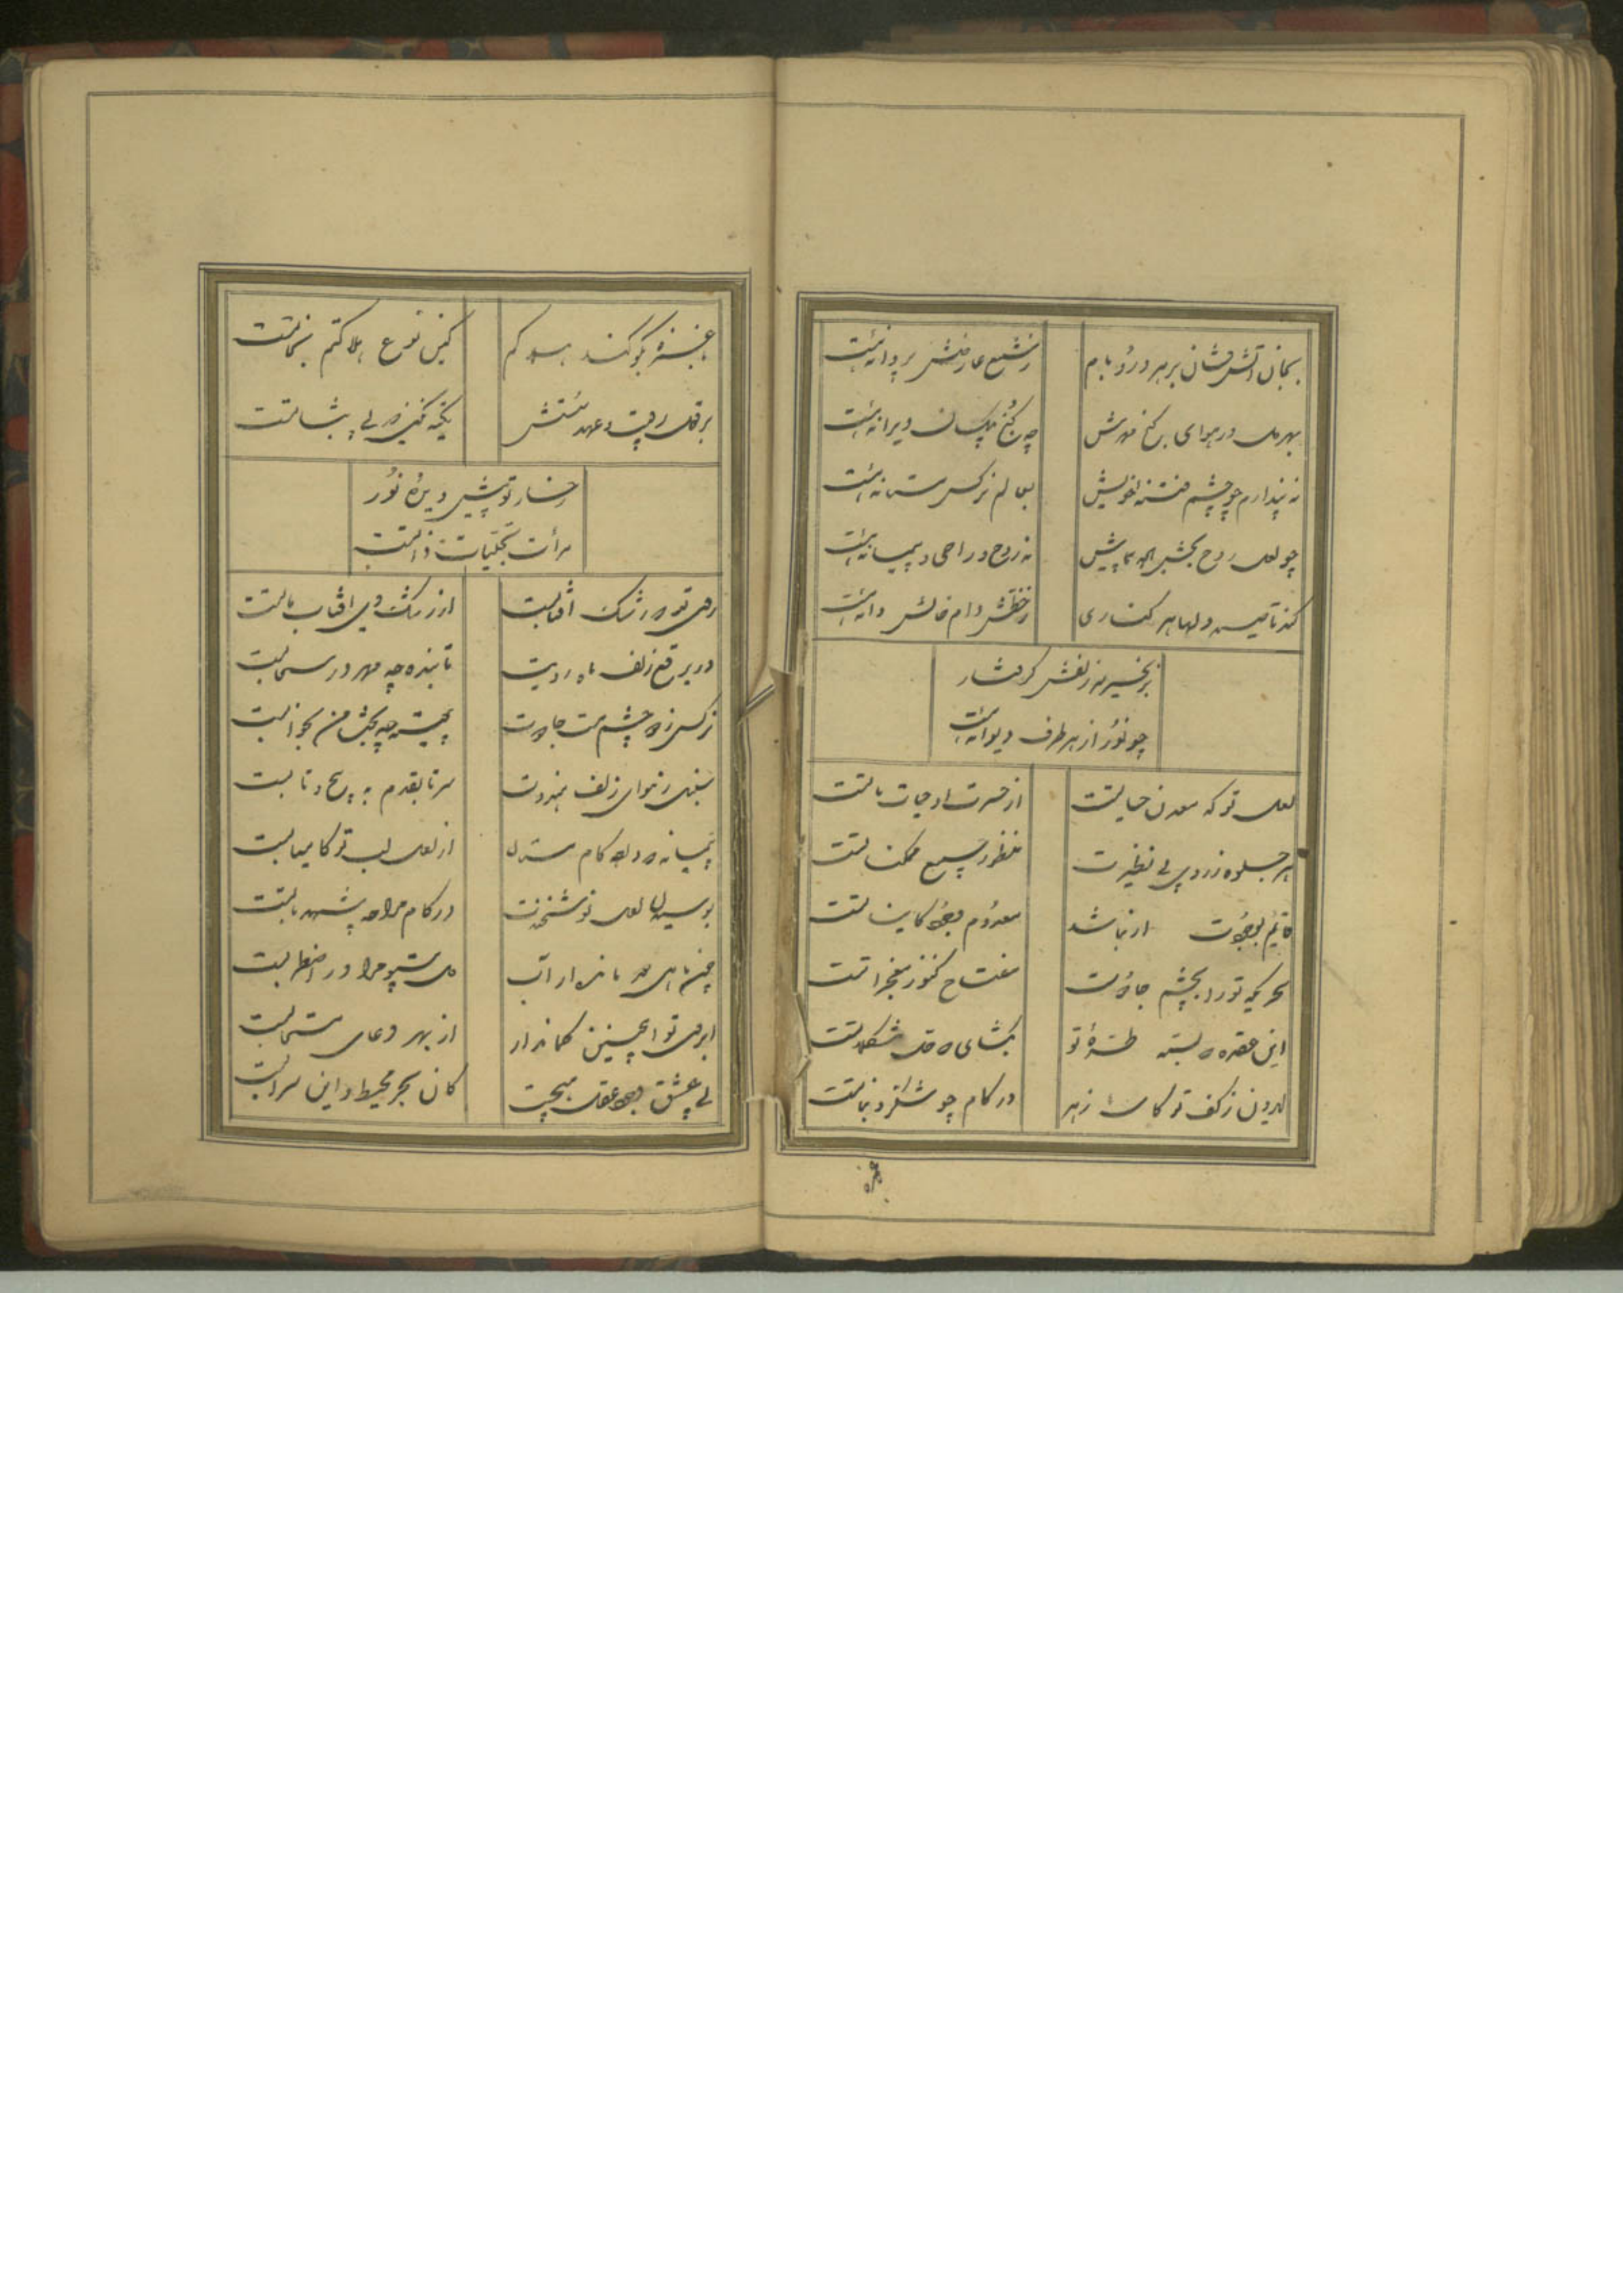 بجان آتش فشان بر هر در و بام ز شمع عارضش پروانه‌ایست
بهر ملک در هوای گنج مهرش چه گنج ویرانه‌ایست
نه پندارم چو چشم فتنه‌انگیزش بعالم نرگس مستانه‌ایست
چو لعل روح بخش پیش نه روح و راحی و پیمانه‌ایست
کند تا صید دلها هر کناری ز خطش دام خالش دانه‌ایست
بزنجیر سر زلفش گرفتار
چو نور از هر طرف دیوانه‌ایست
لعل تو که معدن حیاتست از حسرت او حیات ماتست
هر جلوه ز روی بی نظیرت منظور جمیع ممکناتست
قایم بوجودت ار نباشد معدوم وجود کایناتست
سحریکه تو را بچشم جادوست مفتاح کنوز معجزاتست
این عقده که بسته طره تو بگشای که وقت مشکلاتست
بیرون ز کف تو کاسه زهر در کام چو شکر و نباتست
غمزه
با غمزه بگو کند هلاکم کین نوع هلاکتم نجاتست
بر قول رقیب و عهد سستش تکیه نکنی که بی ثباتست
رخسار تو پیش دیده نور
مرآت تجلیات ذاتست
روی تو که رشک آفتابست از رشک وی آفتاب ماتست
در برقع زلف ماه رویت تابنده چه مهر در سحابست
نرگس زد و چشم مست جادوت پیوسته چه بخت من بخوابست
سنبل ز هوای زلف هندوت سر تا بقدم به پیچ و تابست
پیمانه که داد کام مستان از لعل لب تو کامیابست
بوسیدن لعل نوشخندت در کام مرا چه شهد نابست
چون ماهی کو بماند از آب دل بیتو مرا در اضطرابست
ابروی تو اینچنین کماندار از بهر دعای مستجابست
بی عشق وجود عقل هیچست کان بحر محیط و این سرابست